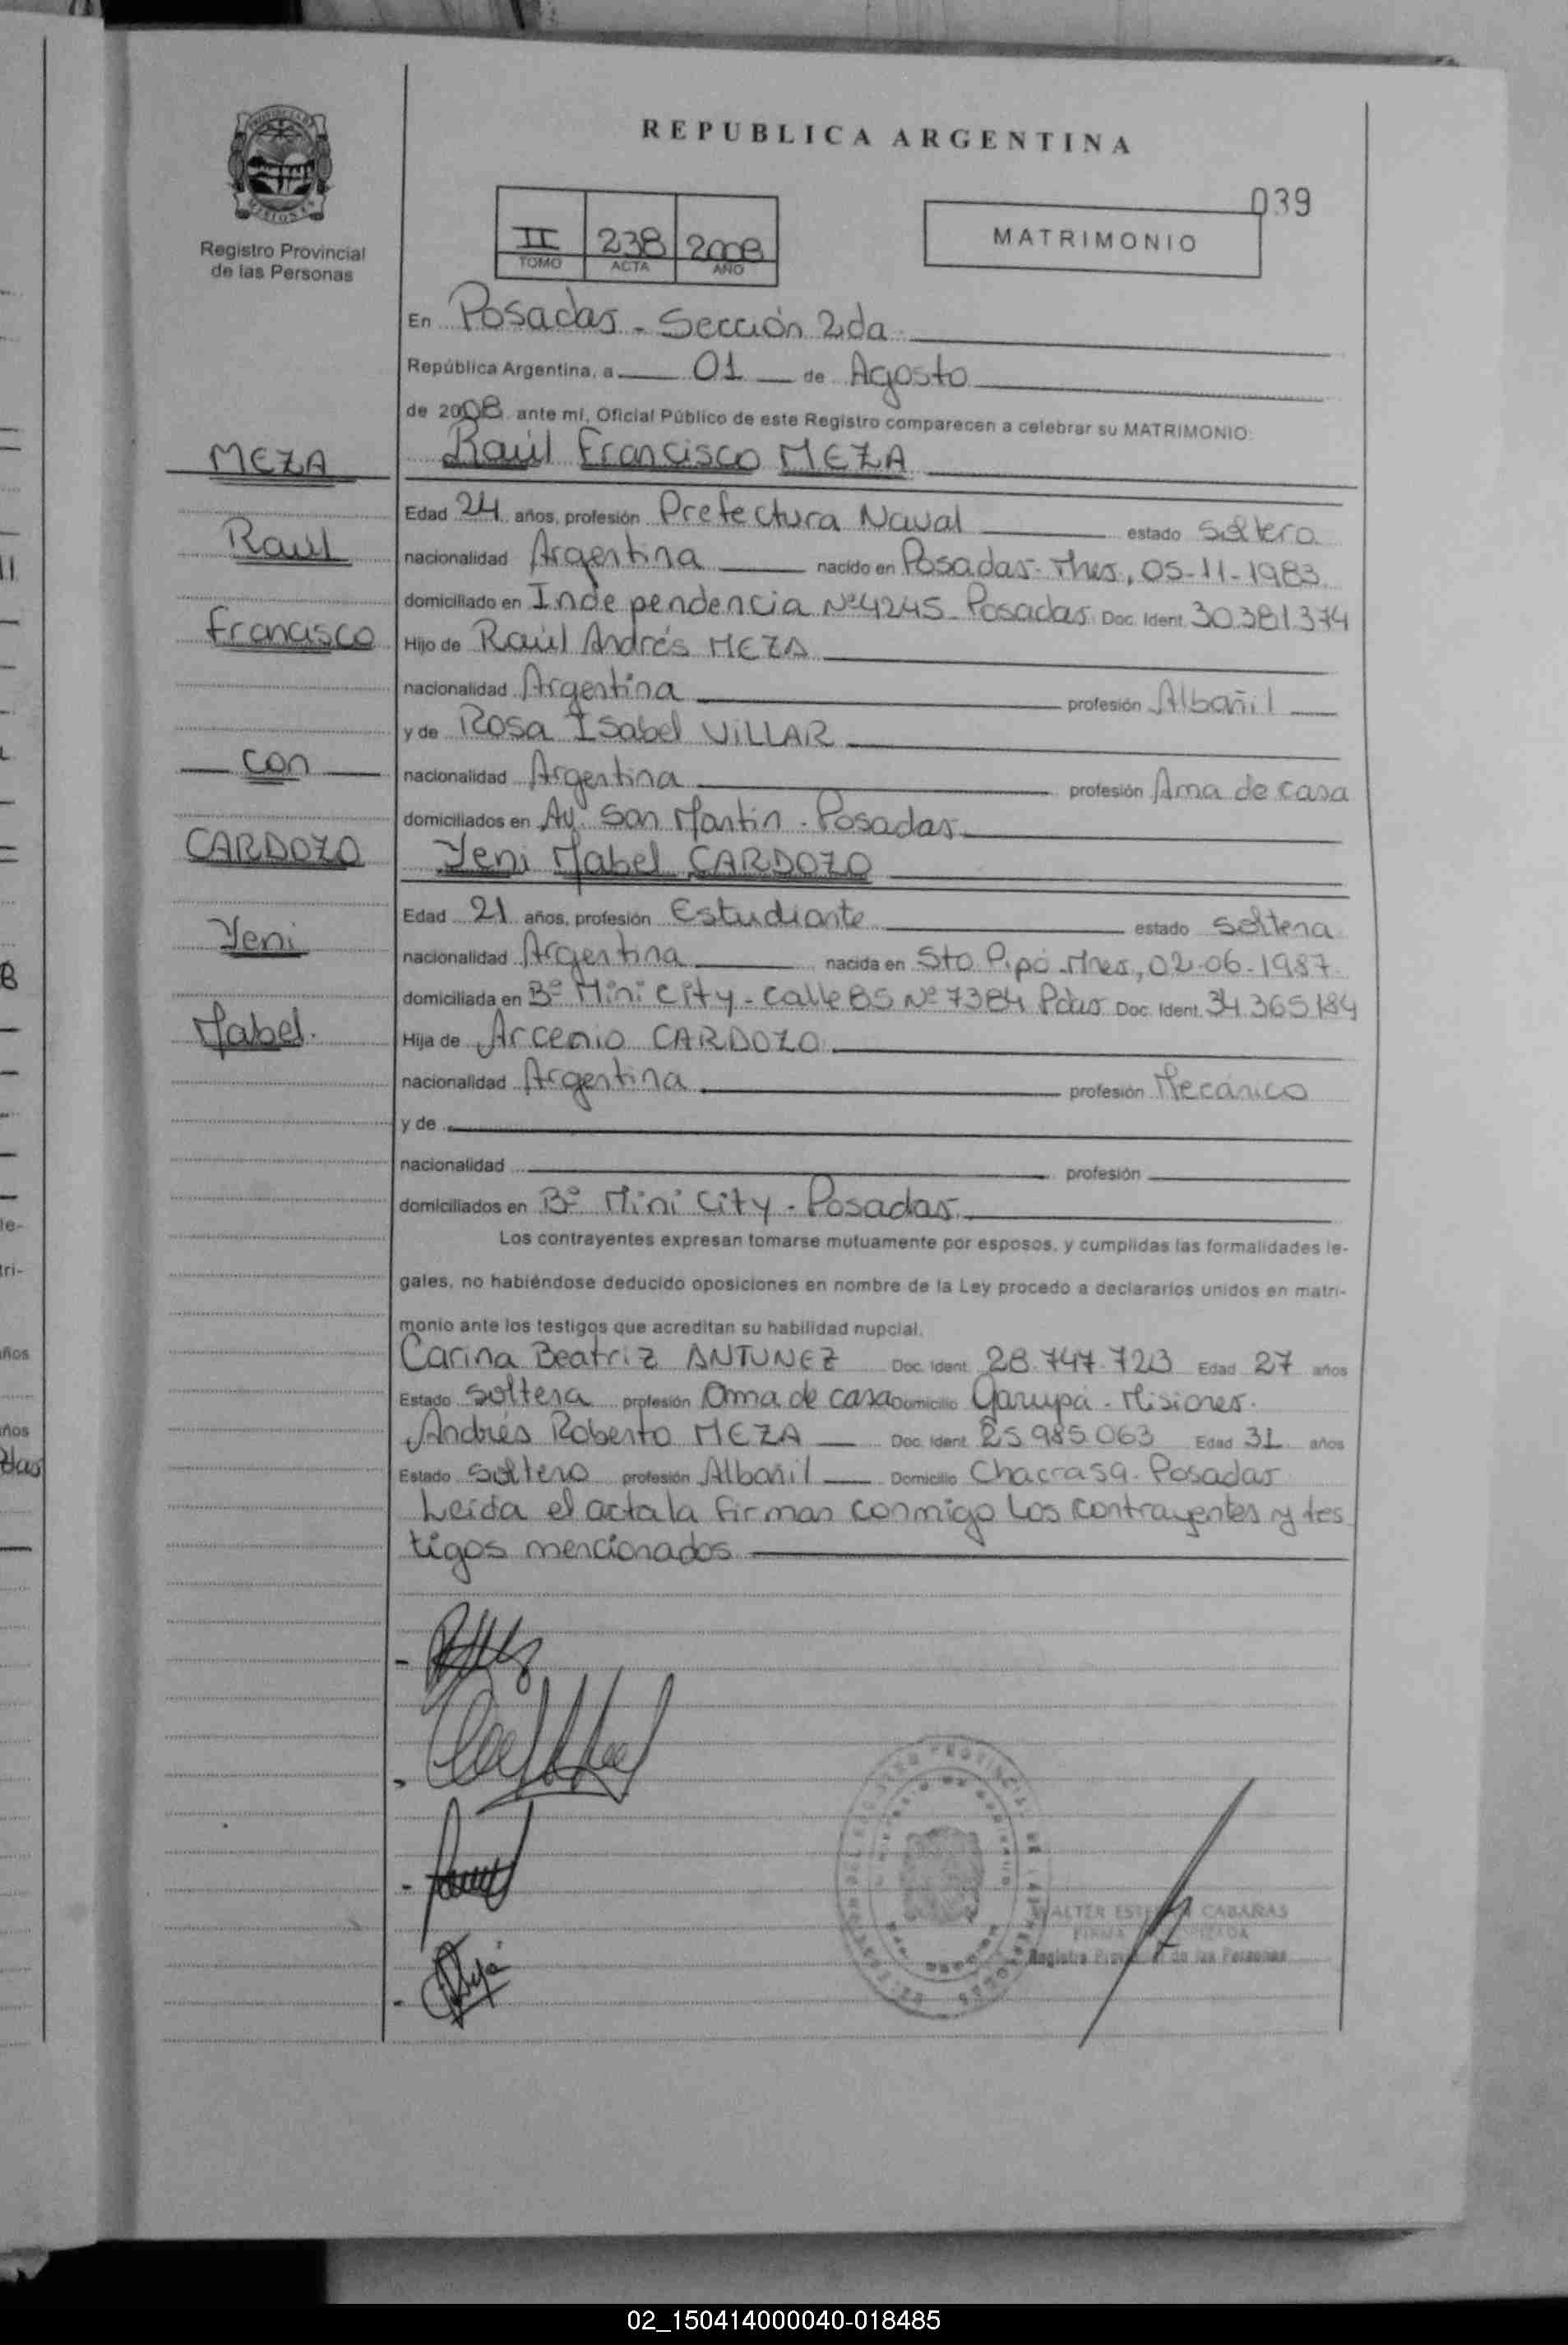 REPUBLICA ARGENTINA
PROVINCIA DE MISIONES
Registro Provincial
de las Personas
II 238 2008
TOMO ACTA AÑO
039
MATRIMONIO
En Posadas - Sección 2da
República Argentina, a 01 de Agosto
de 2008 ante mí, Oficial Público de este Registro comparecen a celebrar su MATRIMONIO:
MEZA
Raúl Francisco MEZA
Edad 24 años, profesión Prefectura Naval estado soltero
Raúl
nacionalidad Argentina nacido en Posadas - Mnes, 05-11-1983
domiciliado en Independencia Nº 4245 - Posadas Doc. Ident. 30.381.374
Francisco
Hijo de Raúl Andrés MEZA
nacionalidad Argentina profesión Albañil
y de Rosa Isabel VILLAR
con
nacionalidad Argentina profesión Ama de casa
domiciliados en Av. San Martín - Posadas
CARDOZO
Yeni Mabel CARDOZO
Edad 21 años, profesión Estudiante estado soltera
Yeni
nacionalidad Argentina nacida en Sto Pipó - Mnes, 02-06-1987
domiciliada en Bº Mini City - Calle 85 Nº 7384 Pdas Doc. Ident. 34.365.184
Mabel.
Hija de Arcenio CARDOZO
nacionalidad Argentina profesión Mecánico
y de
nacionalidad profesión
domiciliados en Bº Mini City - Posadas
Los contrayentes expresan tomarse mutuamente por esposos, y cumplidas las formalidades le-
gales, no habiéndose deducido oposiciones en nombre de la Ley procedo a declararlos unidos en matri-
monio ante los testigos que acreditan su habilidad nupcial.
Carina Beatriz ANTUNEZ Doc. Ident. 28.747.723 Edad 27 años
Estado soltera profesión Ama de casa Domicilio Garupá - Misiones.
Andrés Roberto MEZA Doc. Ident. 25.985.063 Edad 31 años
Estado soltero profesión Albañil Domicilio Chacra 59 - Posadas
Leída el acta la firman conmigo los contrayentes y tes
tigos mencionados
CABAÑAS
FIRMA
Registro Provincial de las Personas
02_150414000040-018485